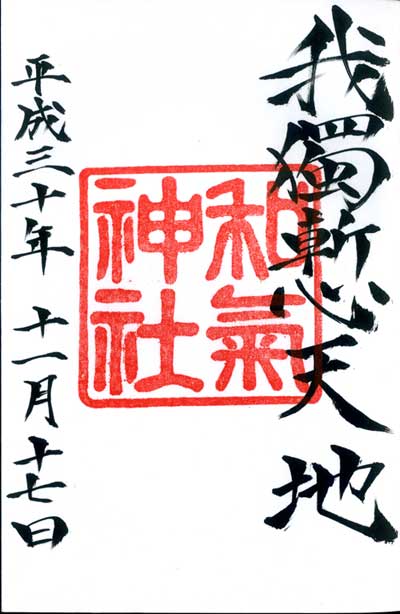 我獨慙天地
和氣
神社
平成三十年 十一月十七日